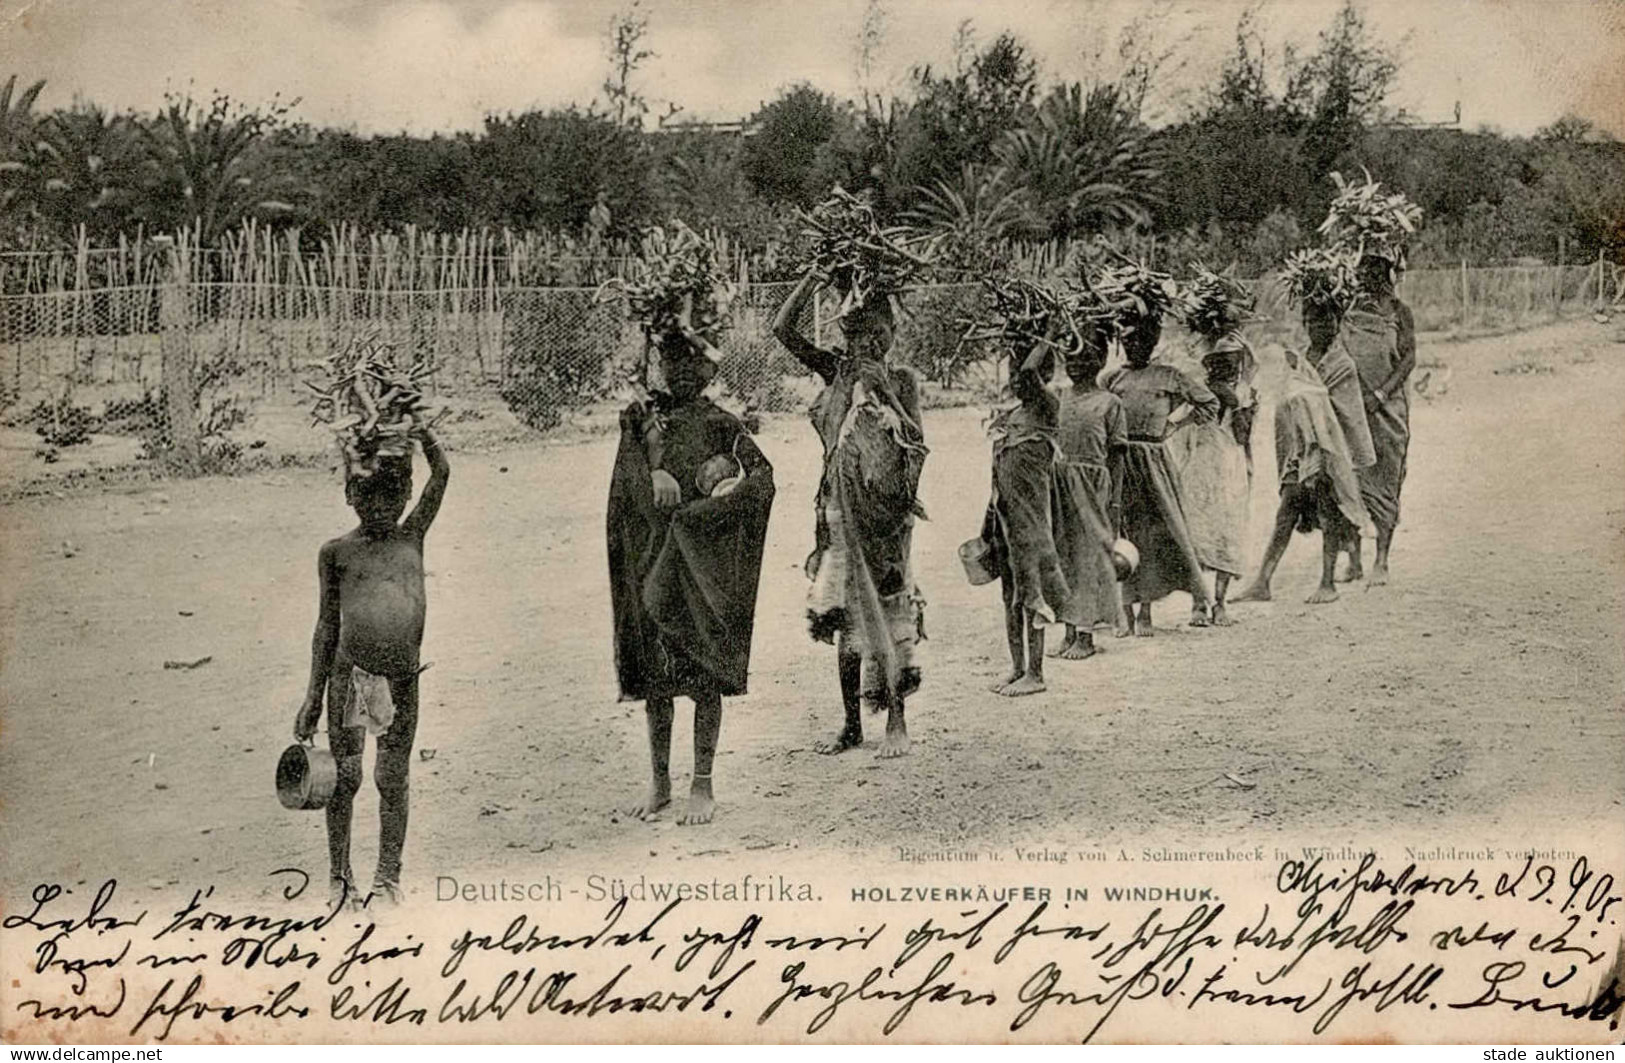 Eigentum u. Verlag von A. Schmerenbeck in Windhuk. Nachdruck verboten.
Deutsch-Südwestafrika. HOLZVERKÄUFER IN WINDHUK.
Lieber Freund!
Bin im Mai hier gelandet, geht mir gut hier, hoffe dasselbe von dir
und schreibe bitte bald Antwort. Herzlichen Gruß d. Freund
www.delcampe.net
stade auktionen